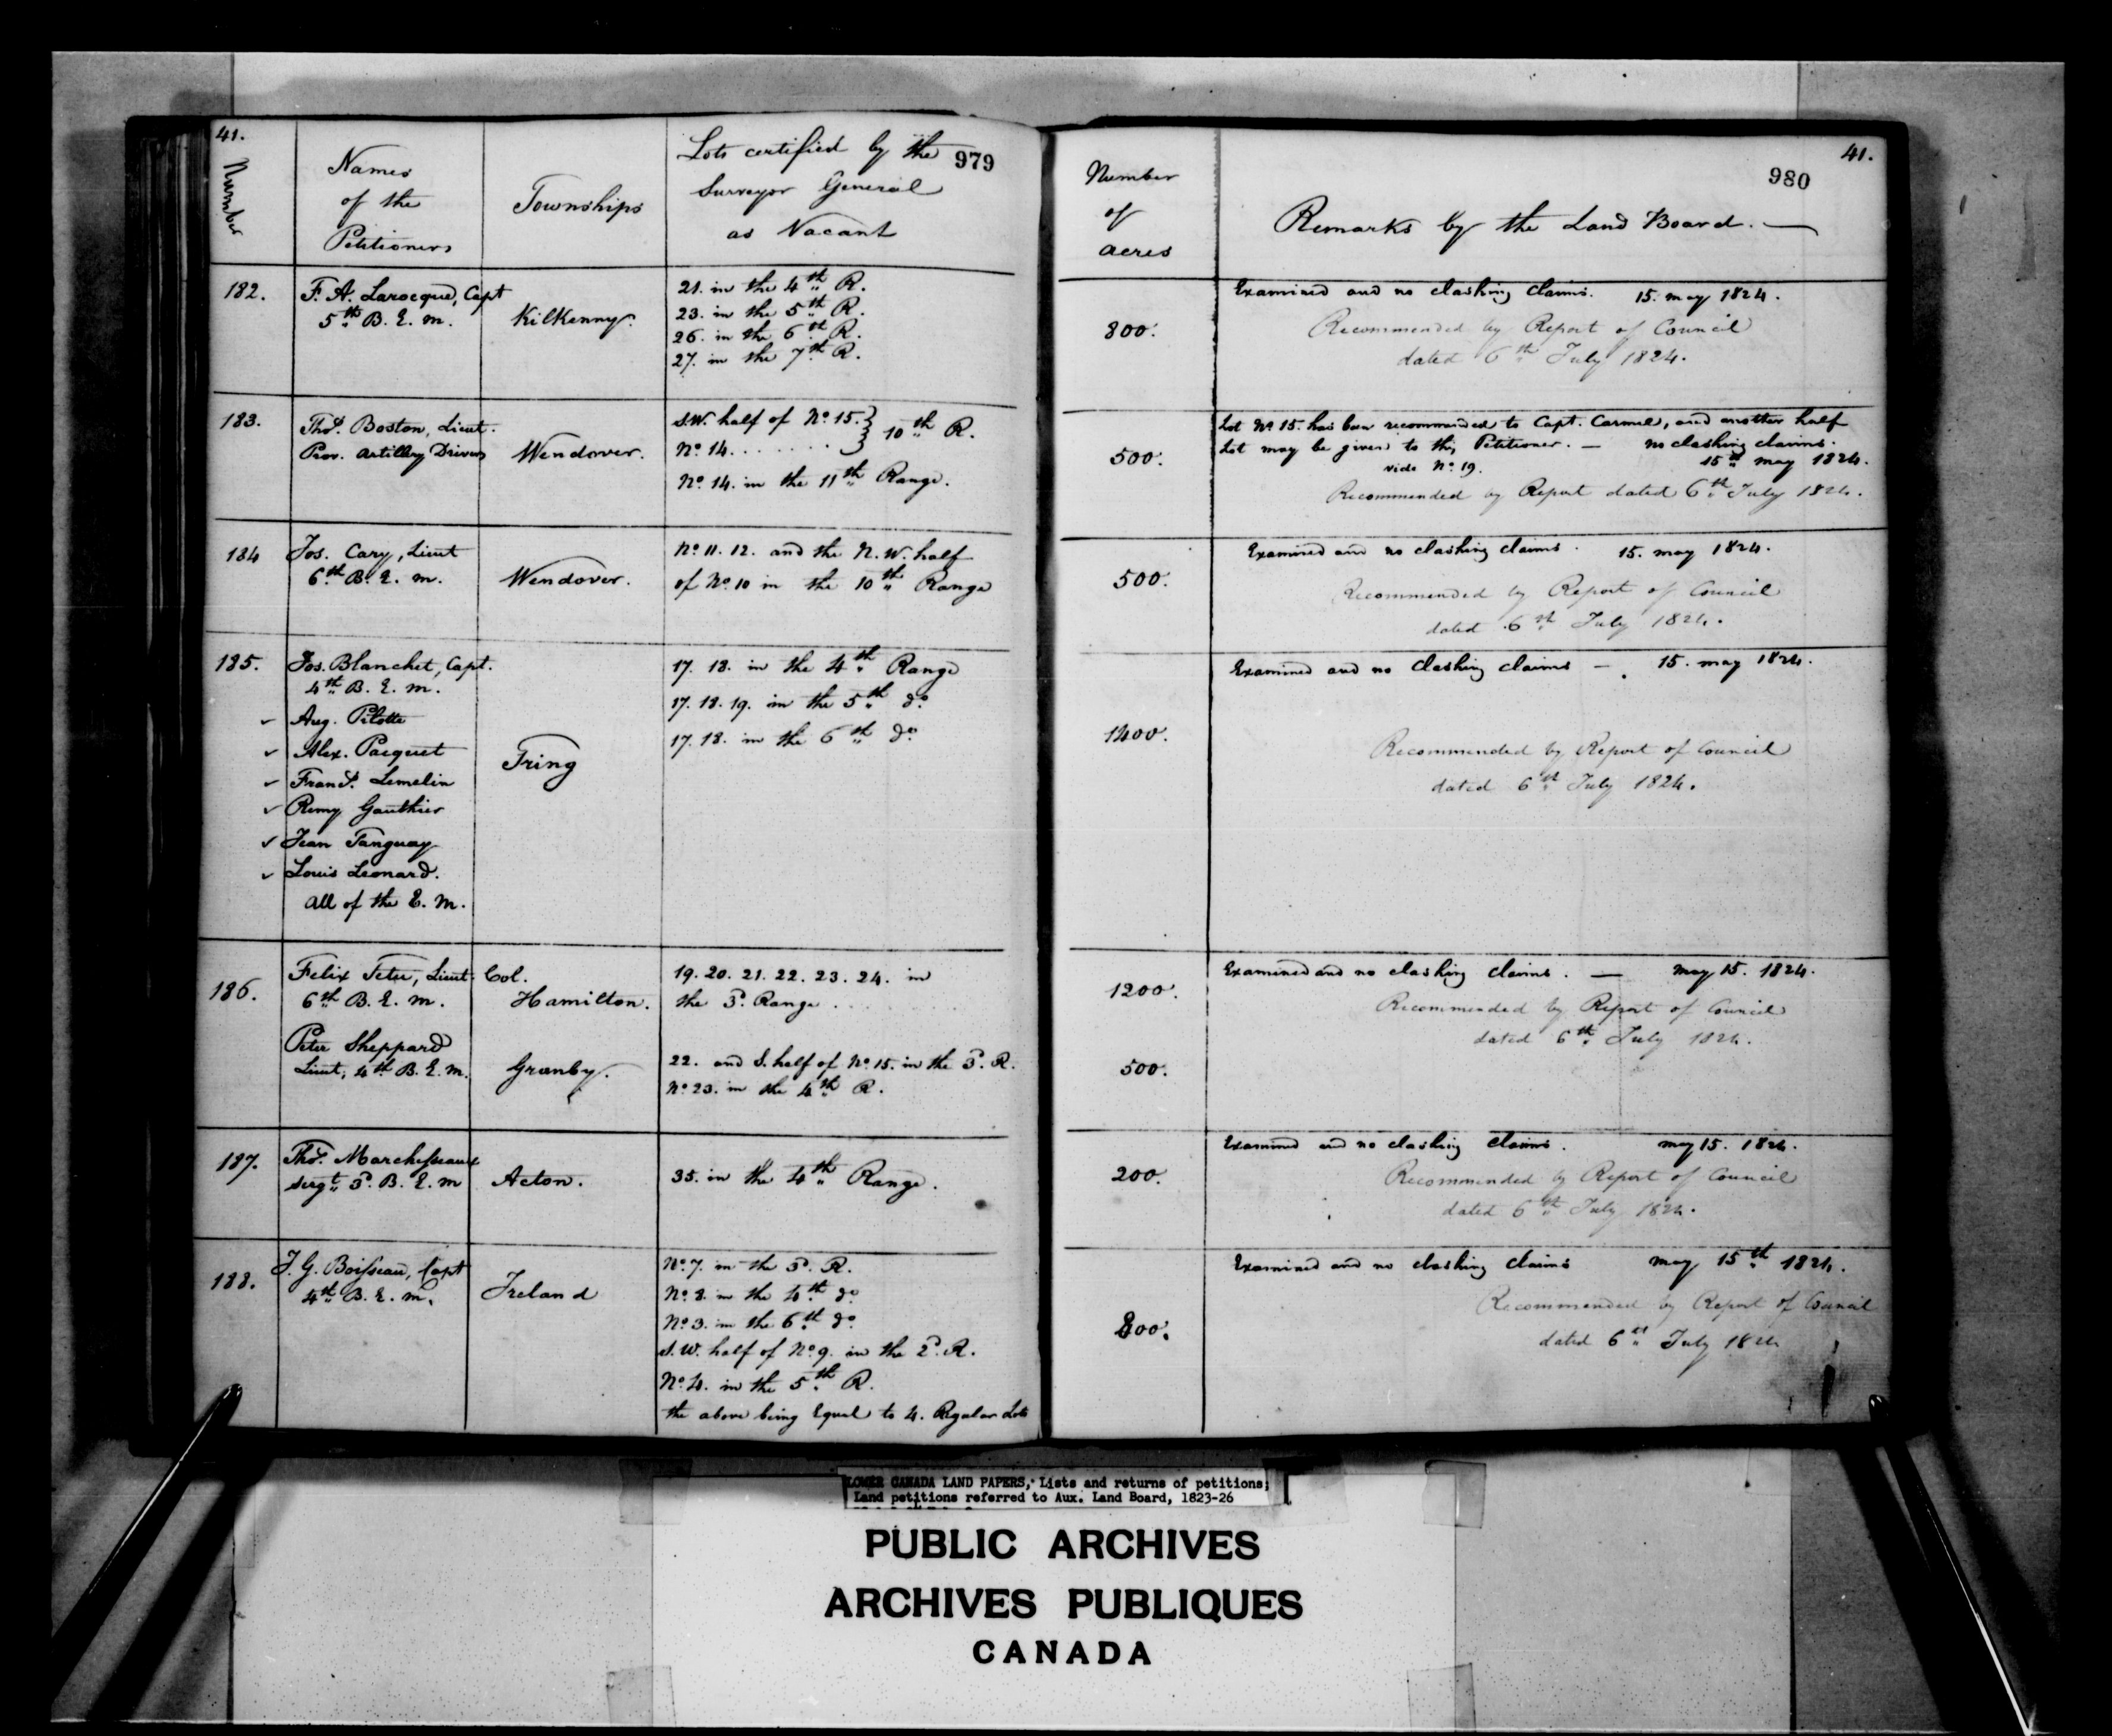 41.
979
Number
Names
of the
Petitioners
Townships
Lots certified by the
Surveyor General
as Vacant
182.
F. A. Larocque, Capt
5th B. E. M.
Kilkenny.
21. in the 4th R.
23. in the 5th R.
26. in the 6th R.
27. in the 7th R.
183.
Thos. Boston, Lieut.
Prov. Artillery Drivers
Wendover.
S.W. half of No. 15. } 10th R.
No. 14. . . . . . . .
No. 14. in the 11th Range.
184
Jos. Cary, Lieut
6th B. E. M.
Wendover.
No. 11. 12. and the N. W. half
of No. 10 in the 10th Range
185.
Jos. Blanchet, Capt.
4th B. E. M.
Aug. Pilotte
Alex. Pacquet
Frans. Lemelin
Remy Gauthier
Jean Tanguay
Louis Leonard.
All of the E. M.
Tring
17. 18. in the 4th Range
17. 18. 19. in the 5th do.
17. 18. in the 6th do.
186.
Felix Tetu, Lieut. Col.
6th B. E. M.
Hamilton.
19. 20. 21. 22. 23. 24. in
the 3d. Range . . . . . . . .
Peter Sheppard
Lieut, 4th B. E. M.
Granby.
22. and S. half of No. 15. in the 3d. R.
No. 23. in the 4th R.
187.
Thos. Marchesseaux
Sergt. 3d. B. E. M
Acton.
35. in the 4th Range.
188.
J. G. Boisseau, Capt
4th B. E. M.
Ireland
No. 7. in the 3d. R.
No. 8. in the 4th do
No. 3. in the 6th do.
S. W. half of No. 9. in the 2d. R.
No. 4. in the 5th R.
the above being Equal to 4. Regular Lots
41.
980
Number
of
acres
Remarks by the Land Board. —
800.
Examined and no clashing Claims. 15. May 1824.
Recommended by Report of Council
dated 6th July 1824.
500.
Lot No. 15. has been recommended to Capt. Carmel, and another half
Lot may be given to this Petitioner. — no clashing claims.
vide No. 19. 15th May 1824.
Recommended by Report dated 6th July 1824.
500.
Examined and no clashing claims. 15. May 1824.
Recommended by Report of Council
dated 6th July 1824.
1400.
Examined and no clashing claims — 15. May 1824.
Recommended by Report of Council
dated 6th July 1824.
1200.
Examined and no clashing claims. — May 15. 1824.
Recommended by Report of Council
dated 6th July 1824.
500.
200.
Examined and no clashing claims. May 15. 1824.
Recommended by Report of Council
dated 6th July 1824.
800.
Examined and no clashing claims May 15th 1824.
Recommended by Report of Council
dated 6th July 1824
LOWER CANADA LAND PAPERS, Lists and returns of petitions;
Land petitions referred to Aux. Land Board, 1823-26
PUBLIC ARCHIVES
ARCHIVES PUBLIQUES
CANADA